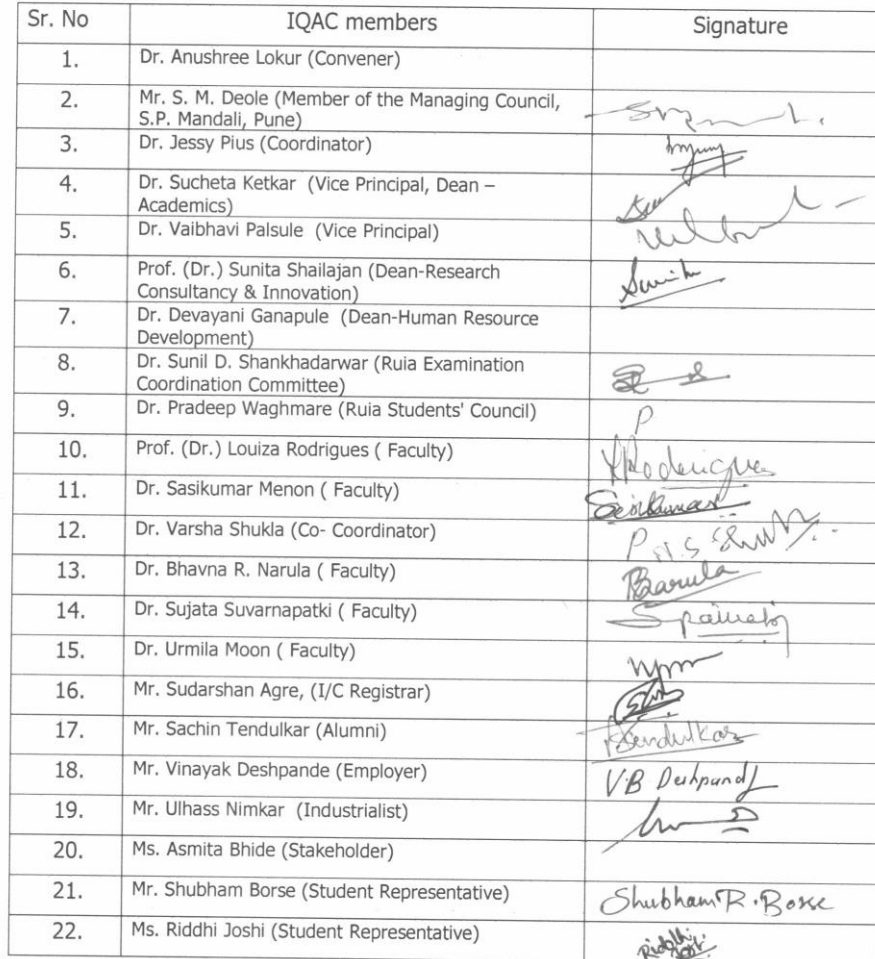 Sr. No IQAC members Signature
1. Dr. Anushree Lokur (Convener)
2. Mr. S. M. Deole (Member of the Managing Council,
S.P. Mandali, Pune)
3. Dr. Jessy Pius (Coordinator)
4. Dr. Sucheta Ketkar (Vice Principal, Dean –
Academics)
5. Dr. Vaibhavi Palsule (Vice Principal)
6. Prof. (Dr.) Sunita Shailajan (Dean-Research
Consultancy & Innovation)
7. Dr. Devayani Ganapule (Dean-Human Resource
Development)
8. Dr. Sunil D. Shankhadarwar (Ruia Examination
Coordination Committee)
9. Dr. Pradeep Waghmare (Ruia Students' Council) P
10. Prof. (Dr.) Louiza Rodrigues ( Faculty) Rodrigues
11. Dr. Sasikumar Menon ( Faculty) Sasikumar
12. Dr. Varsha Shukla (Co- Coordinator) P
13. Dr. Bhavna R. Narula ( Faculty)
14. Dr. Sujata Suvarnapatki ( Faculty)
15. Dr. Urmila Moon ( Faculty)
16. Mr. Sudarshan Agre, (I/C Registrar)
17. Mr. Sachin Tendulkar (Alumni) Tendulkar
18. Mr. Vinayak Deshpande (Employer) V.B Deshpande
19. Mr. Ulhass Nimkar (Industrialist)
20. Ms. Asmita Bhide (Stakeholder)
21. Mr. Shubham Borse (Student Representative) Shubham R. Borse
22. Ms. Riddhi Joshi (Student Representative) Riddhi